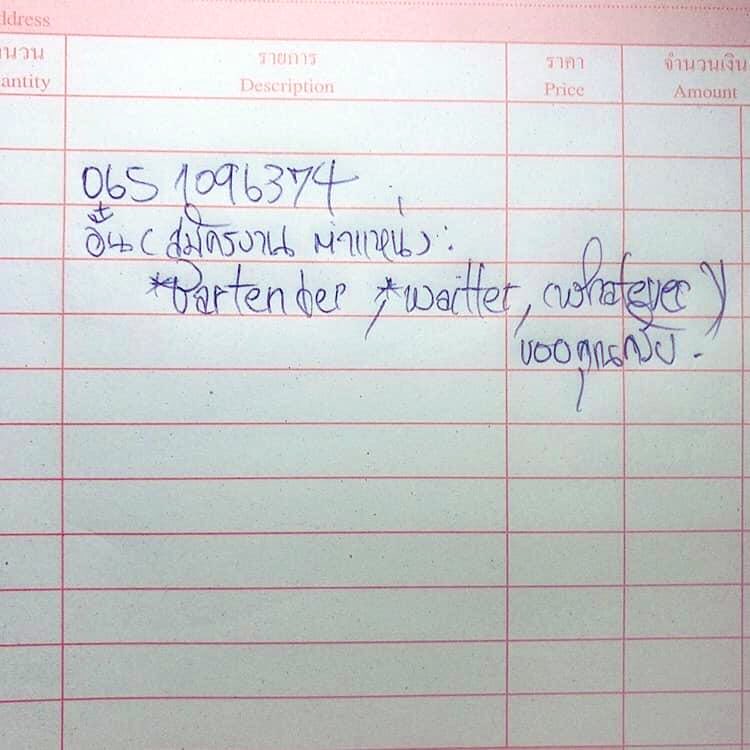 ddress
นวน รายการ ราคา จำนวนเงิน
antity Description Price Amount
065 1096374
อั๋น (สมัครงาน ตำแหน่ง :
*Bartender , *waitter, (whatever)
ขอบคุณครับ .